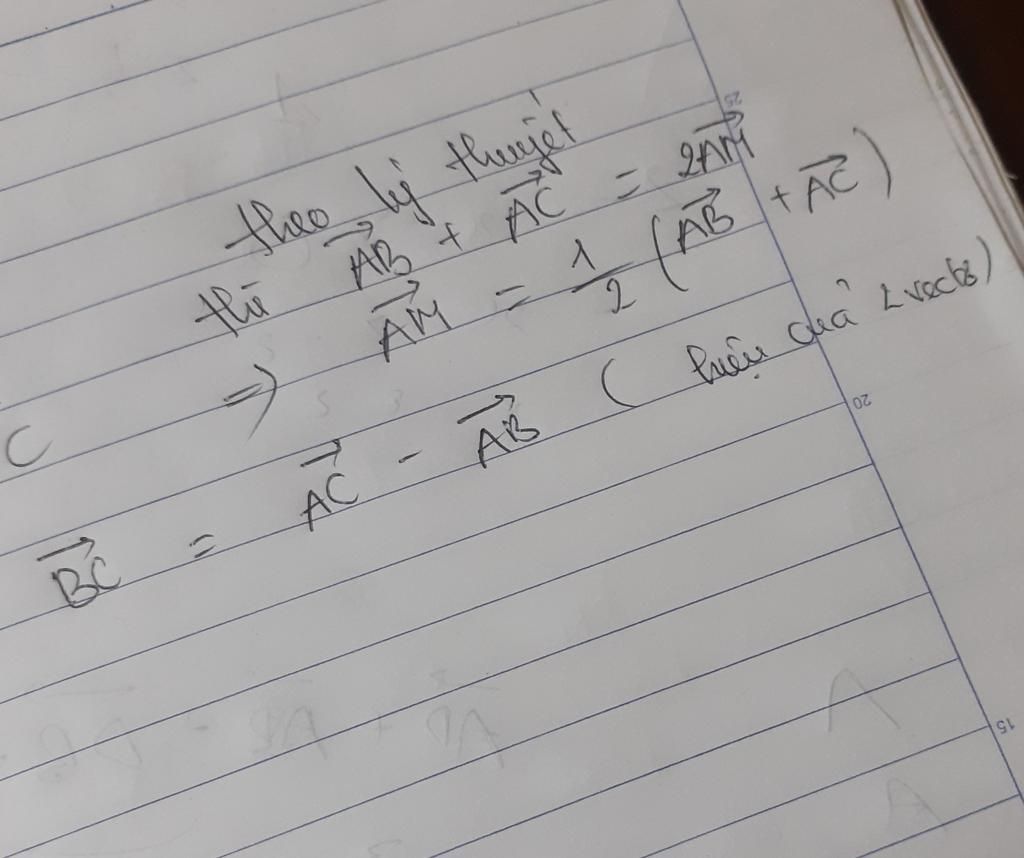 theo lý thuyết
thì $\overrightarrow{AB} + \overrightarrow{AC} = 2\overrightarrow{AM}$
=> $\overrightarrow{AM} = \frac{1}{2} (\overrightarrow{AB} + \overrightarrow{AC})$
C
$\overrightarrow{BC} = \overrightarrow{AC} - \overrightarrow{AB}$ ( hiệu của 2 vectơ)
25
20
15